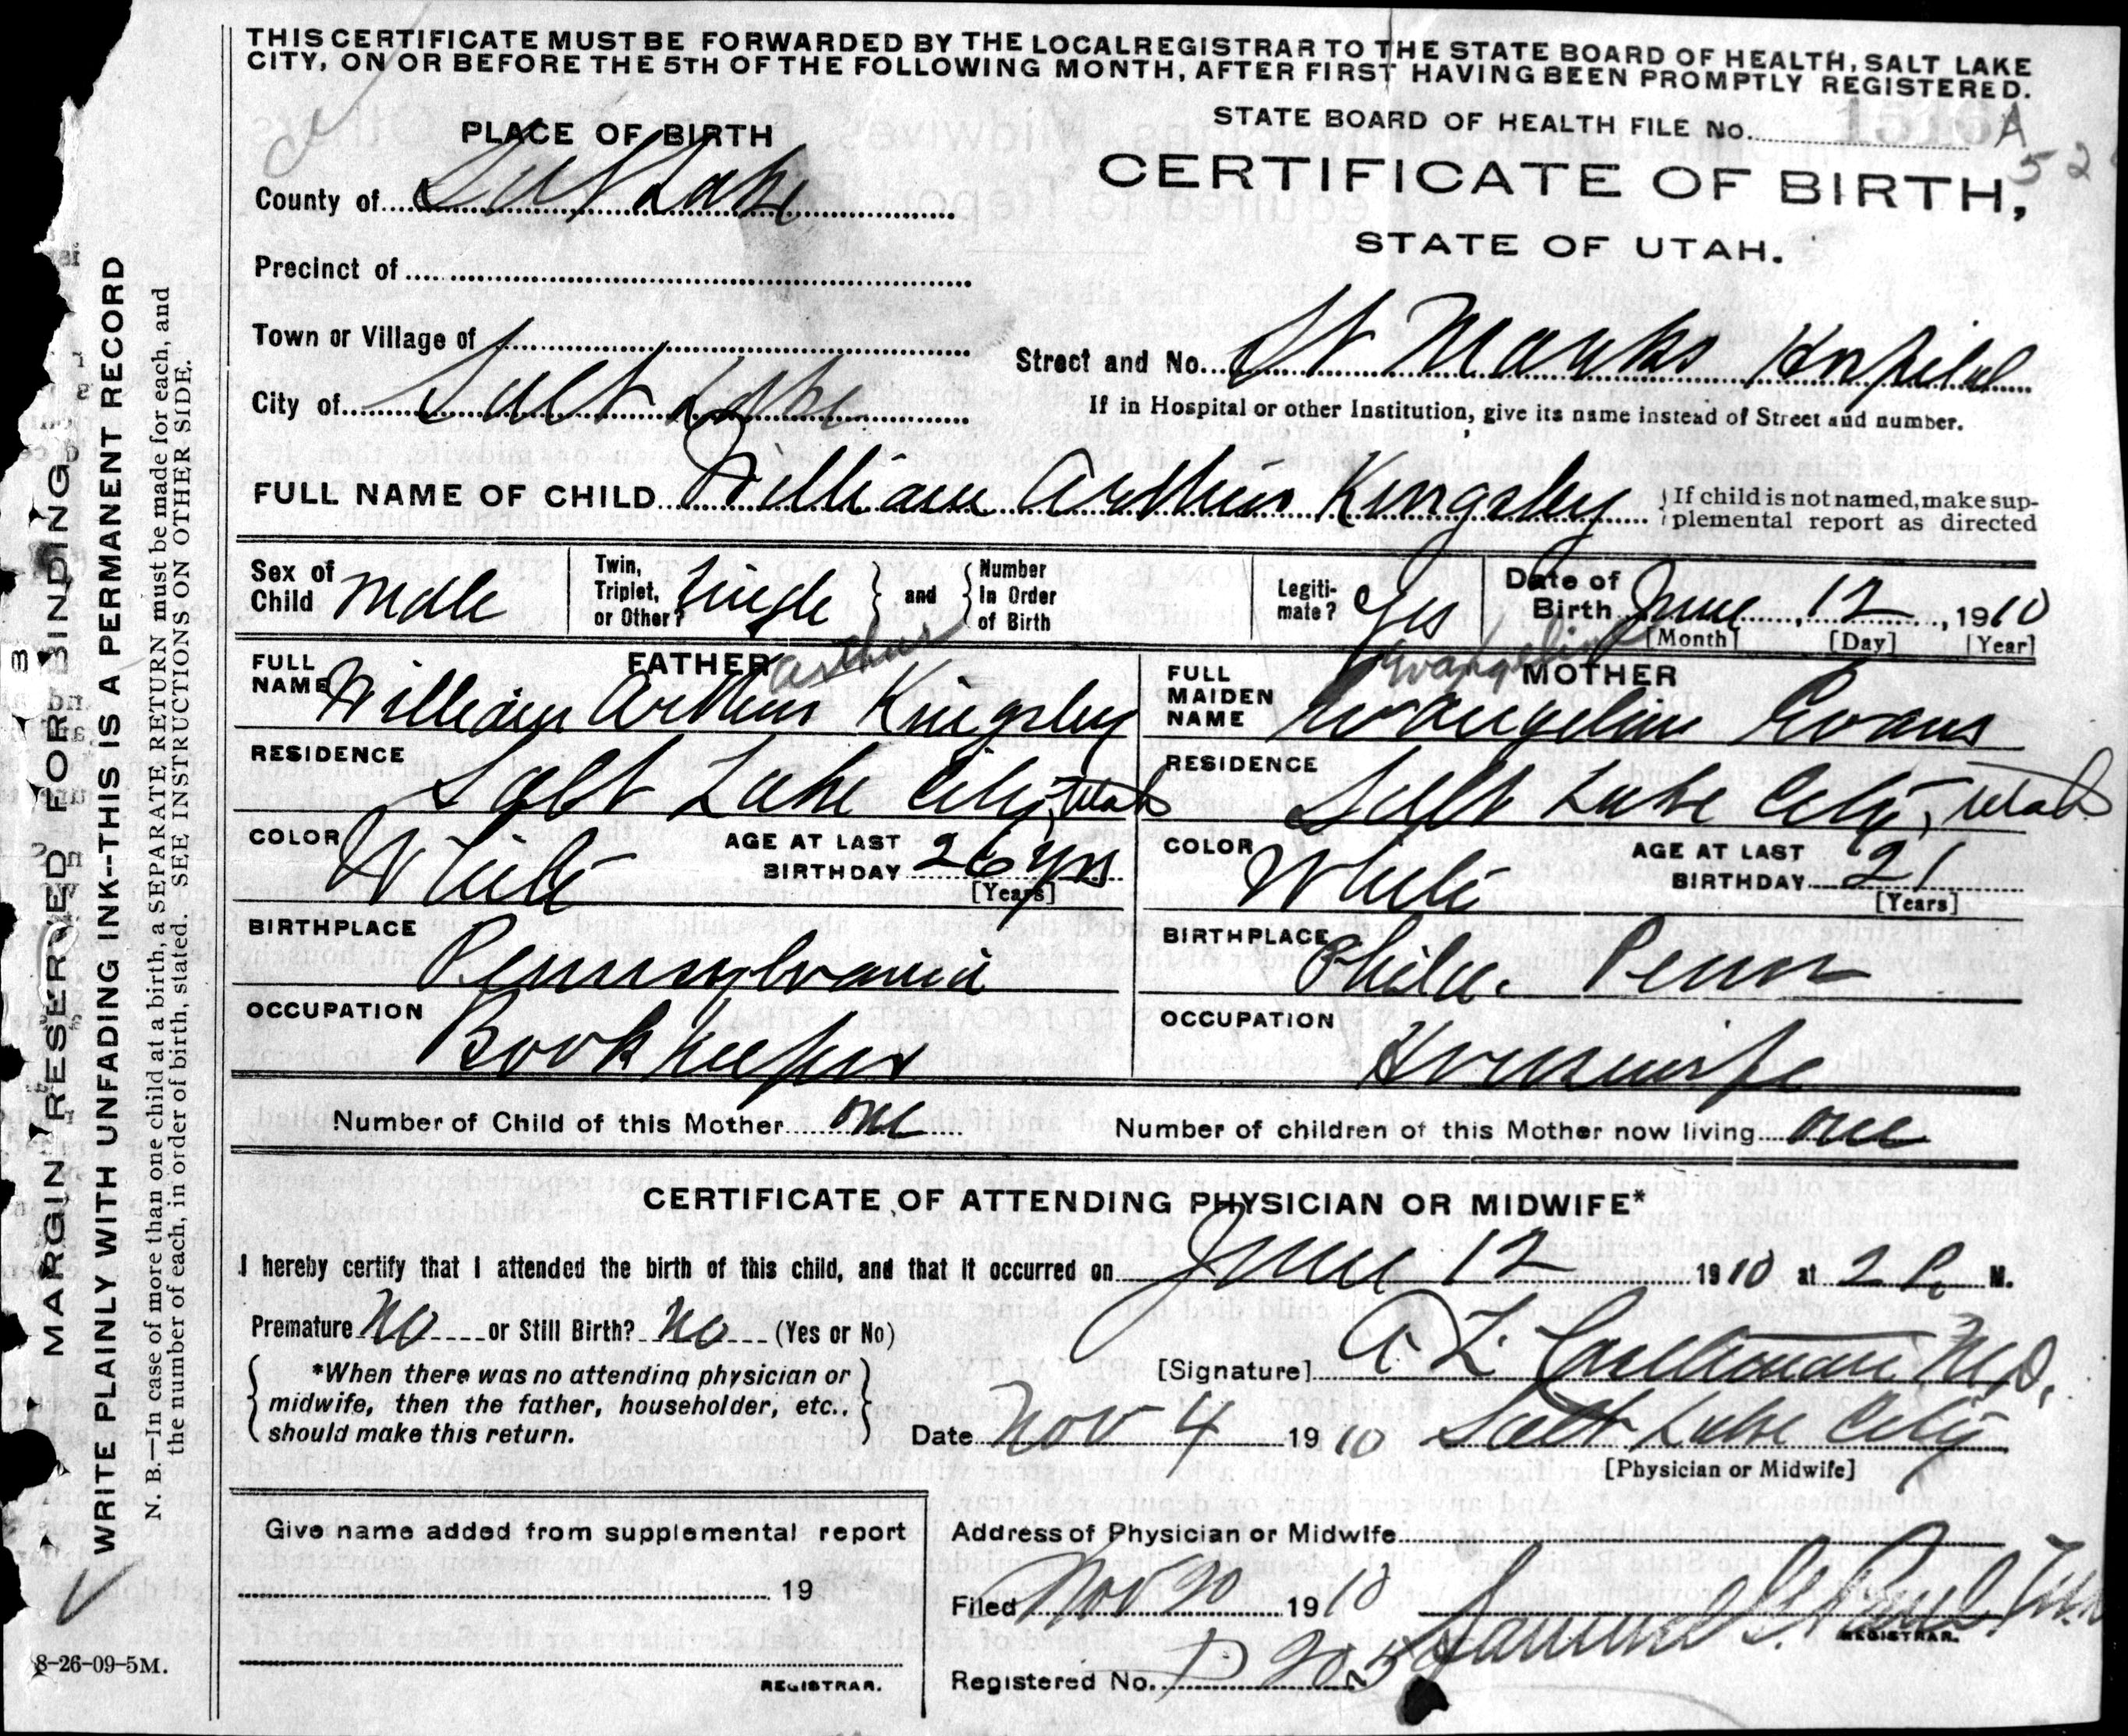 THIS CERTIFICATE MUST BE FORWARDED BY THE LOCAL REGISTRAR TO THE STATE BOARD OF HEALTH, SALT LAKE
CITY, ON OR BEFORE THE 5TH OF THE FOLLOWING MONTH, AFTER FIRST HAVING BEEN PROMPTLY REGISTERED.
STATE BOARD OF HEALTH FILE No. A
52
PLACE OF BIRTH
CERTIFICATE OF BIRTH,
STATE OF UTAH.
County of Salt Lake
Precinct of
Town or Village of
Street and No. St Marks Hospital
City of Salt Lake
If in Hospital or other Institution, give its name instead of Street and number.
FULL NAME OF CHILD William Arthur Kingsley
If child is not named, make sup-
plemental report as directed
Sex of Child Male
Twin, Triplet, or Other? Single and Number In Order of Birth
Legiti-mate? Yes
Date of Birth June, 12, 1910
[Month] [Day] [Year]
FATHER Arthur
FULL NAME William Arthur Kingsley
RESIDENCE Salt Lake City, Utah
COLOR White AGE AT LAST BIRTHDAY 26 yrs [Years]
BIRTHPLACE Pennsylvania
OCCUPATION Book Keeper
Evangeline MOTHER
FULL MAIDEN NAME Evangeline Evans
RESIDENCE Salt Lake City, Utah
COLOR White AGE AT LAST BIRTHDAY 21 [Years]
BIRTHPLACE Phila. Penn
OCCUPATION Housewife
Number of Child of this Mother one Number of children of this Mother now living one
CERTIFICATE OF ATTENDING PHYSICIAN OR MIDWIFE*
I hereby certify that I attended the birth of this child, and that it occurred on June 12 1910 at 2 P. M.
Premature No or Still Birth? No (Yes or No)
*When there was no attending physician or
midwife, then the father, householder, etc.,
should make this return.
[Signature] A. L. M.D.
Date Nov 4 1910 Salt Lake City
[Physician or Midwife]
Give name added from supplemental report
19
REGISTRAR.
Address of Physician or Midwife
Filed Nov 1910 Samuel G. Paul
REGISTRAR.
Registered No.
8-26-09-5M.
MARGIN RESERVED FOR BINDING
WRITE PLAINLY WITH UNFADING INK--THIS IS A PERMANENT RECORD
N. B.—In case of more than one child at a birth, a SEPARATE RETURN must be made for each, and
the number of each, in order of birth, stated. SEE INSTRUCTIONS ON OTHER SIDE.